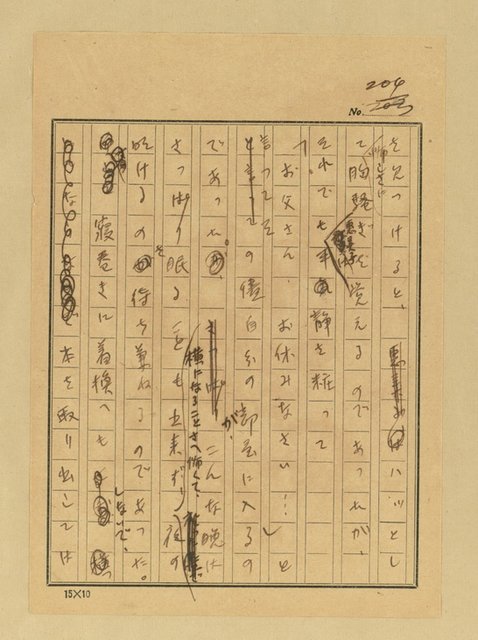 204
No. 203
を見つけると、ハッとし
て、怖しさに胸騒ぎを覚えるのであったが、
それでも 静を粧って
「お父さん、お休みなさい…」と
言ってその儘自分の部屋に入るの
であった。が、こんな晩は
横になることさへ怖くて、
さっぱり眠ることも出来ず、夜の
明けるのを待ち兼ねるのであった。
寝巻きに着換へもしないで、
本を取り出しては
15×10